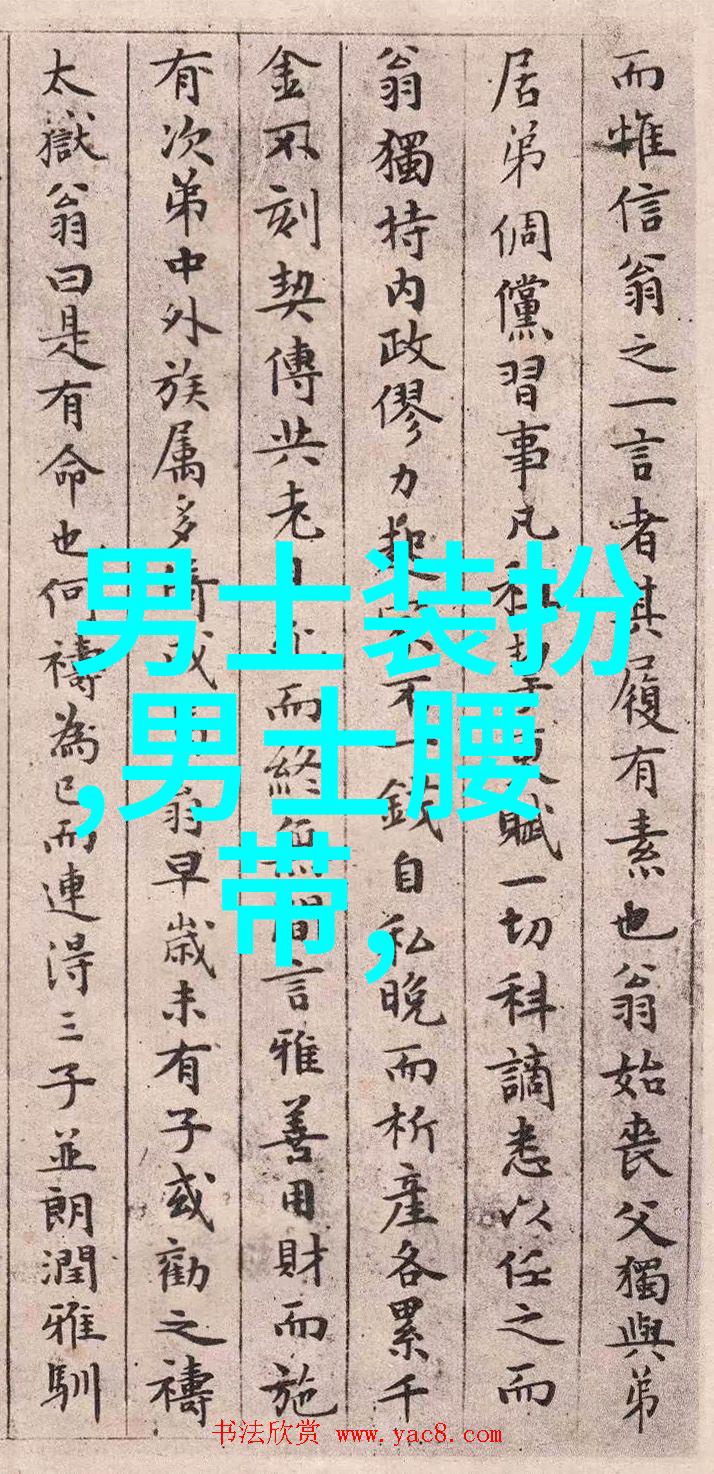 而惟信翁之一言者其履有素也翁始丧父獨與弟
居弟倜儻習事凡租賦一切科謫悉以任之而
翁獨持内政僇力起家不一錢自私晚而析產各累千
金不刻契傳共老而終無間言雅善用財而施
有次弟中外族属多翁早歲未有子或勸之禱
太嶽翁曰是有命也何禱為已而連得三子並朗潤雅馴
男士装扮
,男士腰
带,
书法欣赏 www.yac8.com